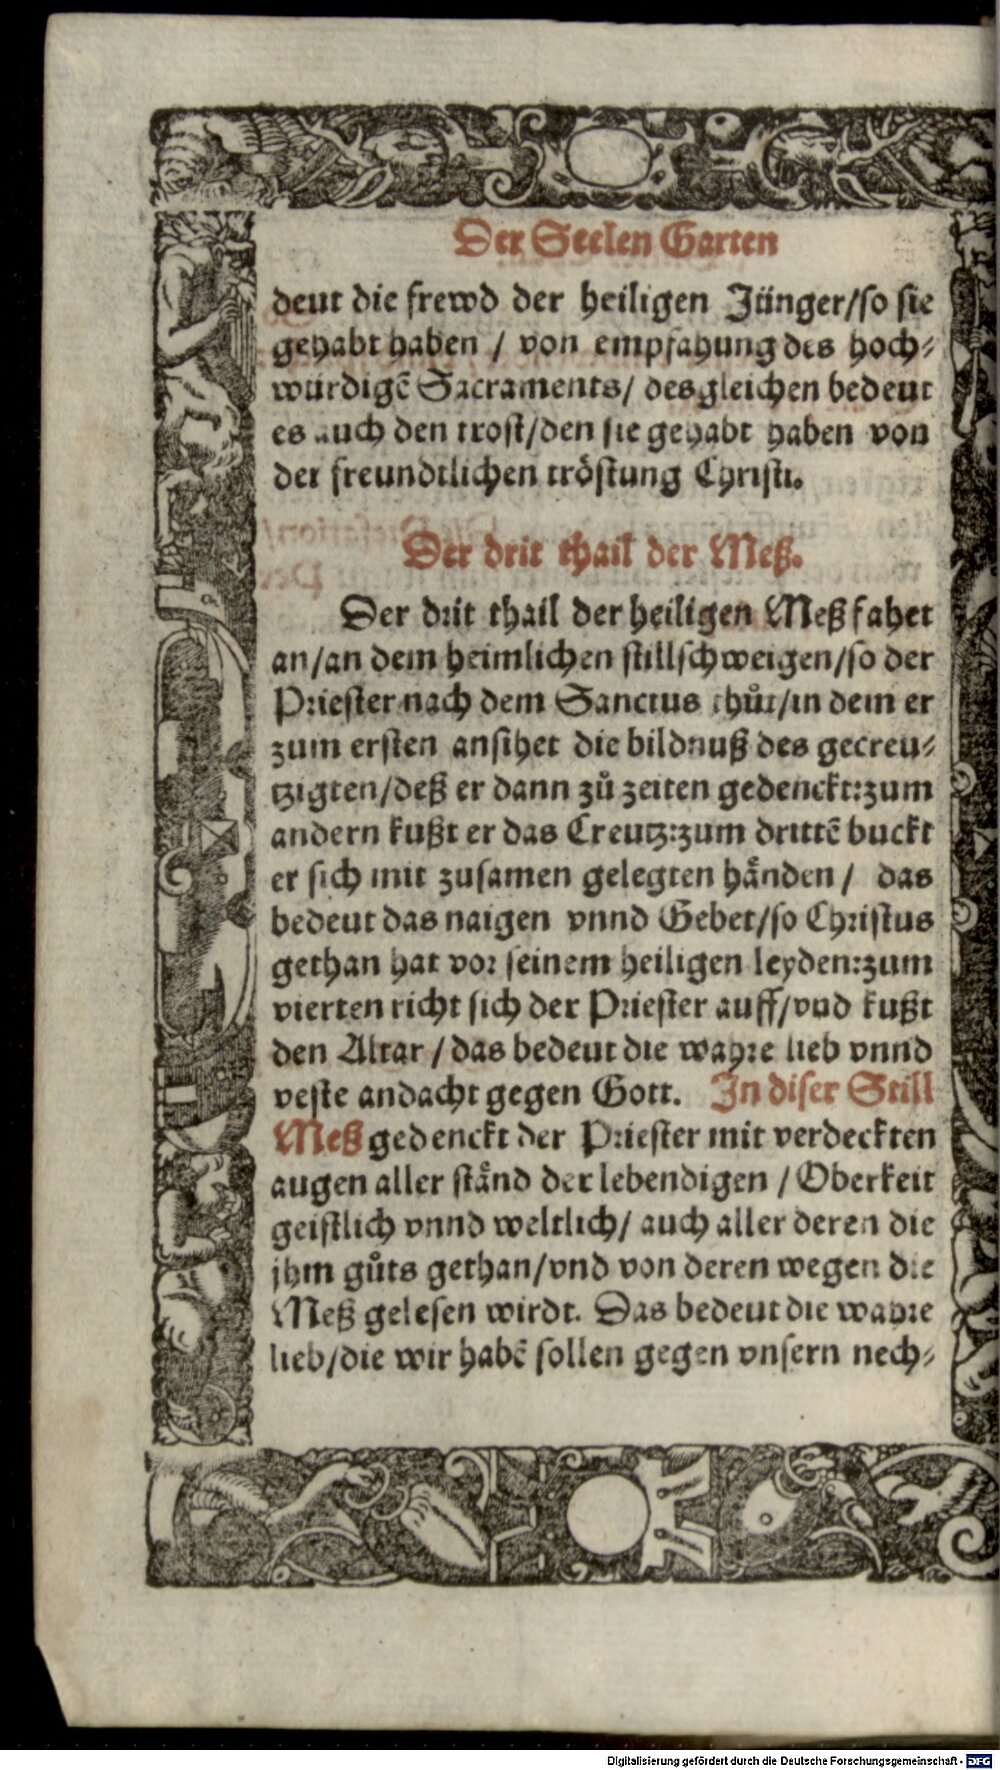 Der Seelen Garten
deut die frewd der heiligen Jünger/so sie
gehabt haben / von empfahung des hoch⸗
würdigẽ Sacraments/ desgleichen bedeut
es auch den trost/den sie gehabt haben von
der freundtlichen tröstung Christi.
Der drit thail der Meß.
Der drit thail der heiligen Meß fahet
an/an dem heimlichen stillschweigen/so der
Priester nach dem Sanctus thůt/in dem er
zum ersten ansihet die bildnuß des gecreu⸗
tzigten/deß er dann zů zeiten gedenckt:zum
andern kußt er das Creutz:zum drittẽ buckt
er sich mit zusamen gelegten hånden / das
bedeut das naigen vnnd Gebet/so Christus
gethan hat vor seinem heiligen leyden:zum
vierten richt sich der Priester auff/vnd kußt
den Altar / das bedeut die wahre lieb vnnd
veste andacht gegen Gott. In diser Still
Meß gedenckt der Priester mit verdeckten
augen aller stånd der lebendigen / Oberkeit
geistlich vnnd weltlich/ auch aller deren die
jhm gůts gethan/vnd von deren wegen die
Meß gelesen wirdt. Das bedeut die wahre
lieb/die wir habẽ sollen gegen vnsern nech⸗
Digitalisierung gefördert durch die Deutsche Forschungsgemeinschaft - DFG